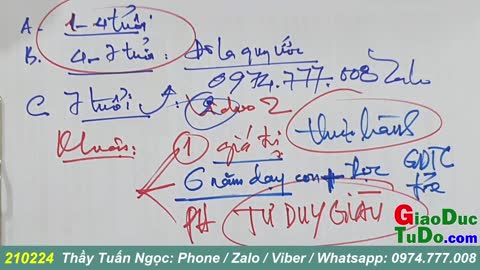 A. 1-4 tuổi
B. 4-7 tuổi: Đôla quy ước
0974.777.008 Zalo
C. 7 tuổi
Q luận:
1 giá trị
thực hành
6 năm dạy con học
GDTC
trẻ
PH TƯ DUY GIÀU
GiaoDuc
TuDo.com
210224 Thầy Tuấn Ngọc: Phone / Zalo / Viber / Whatsapp: 0974.777.008